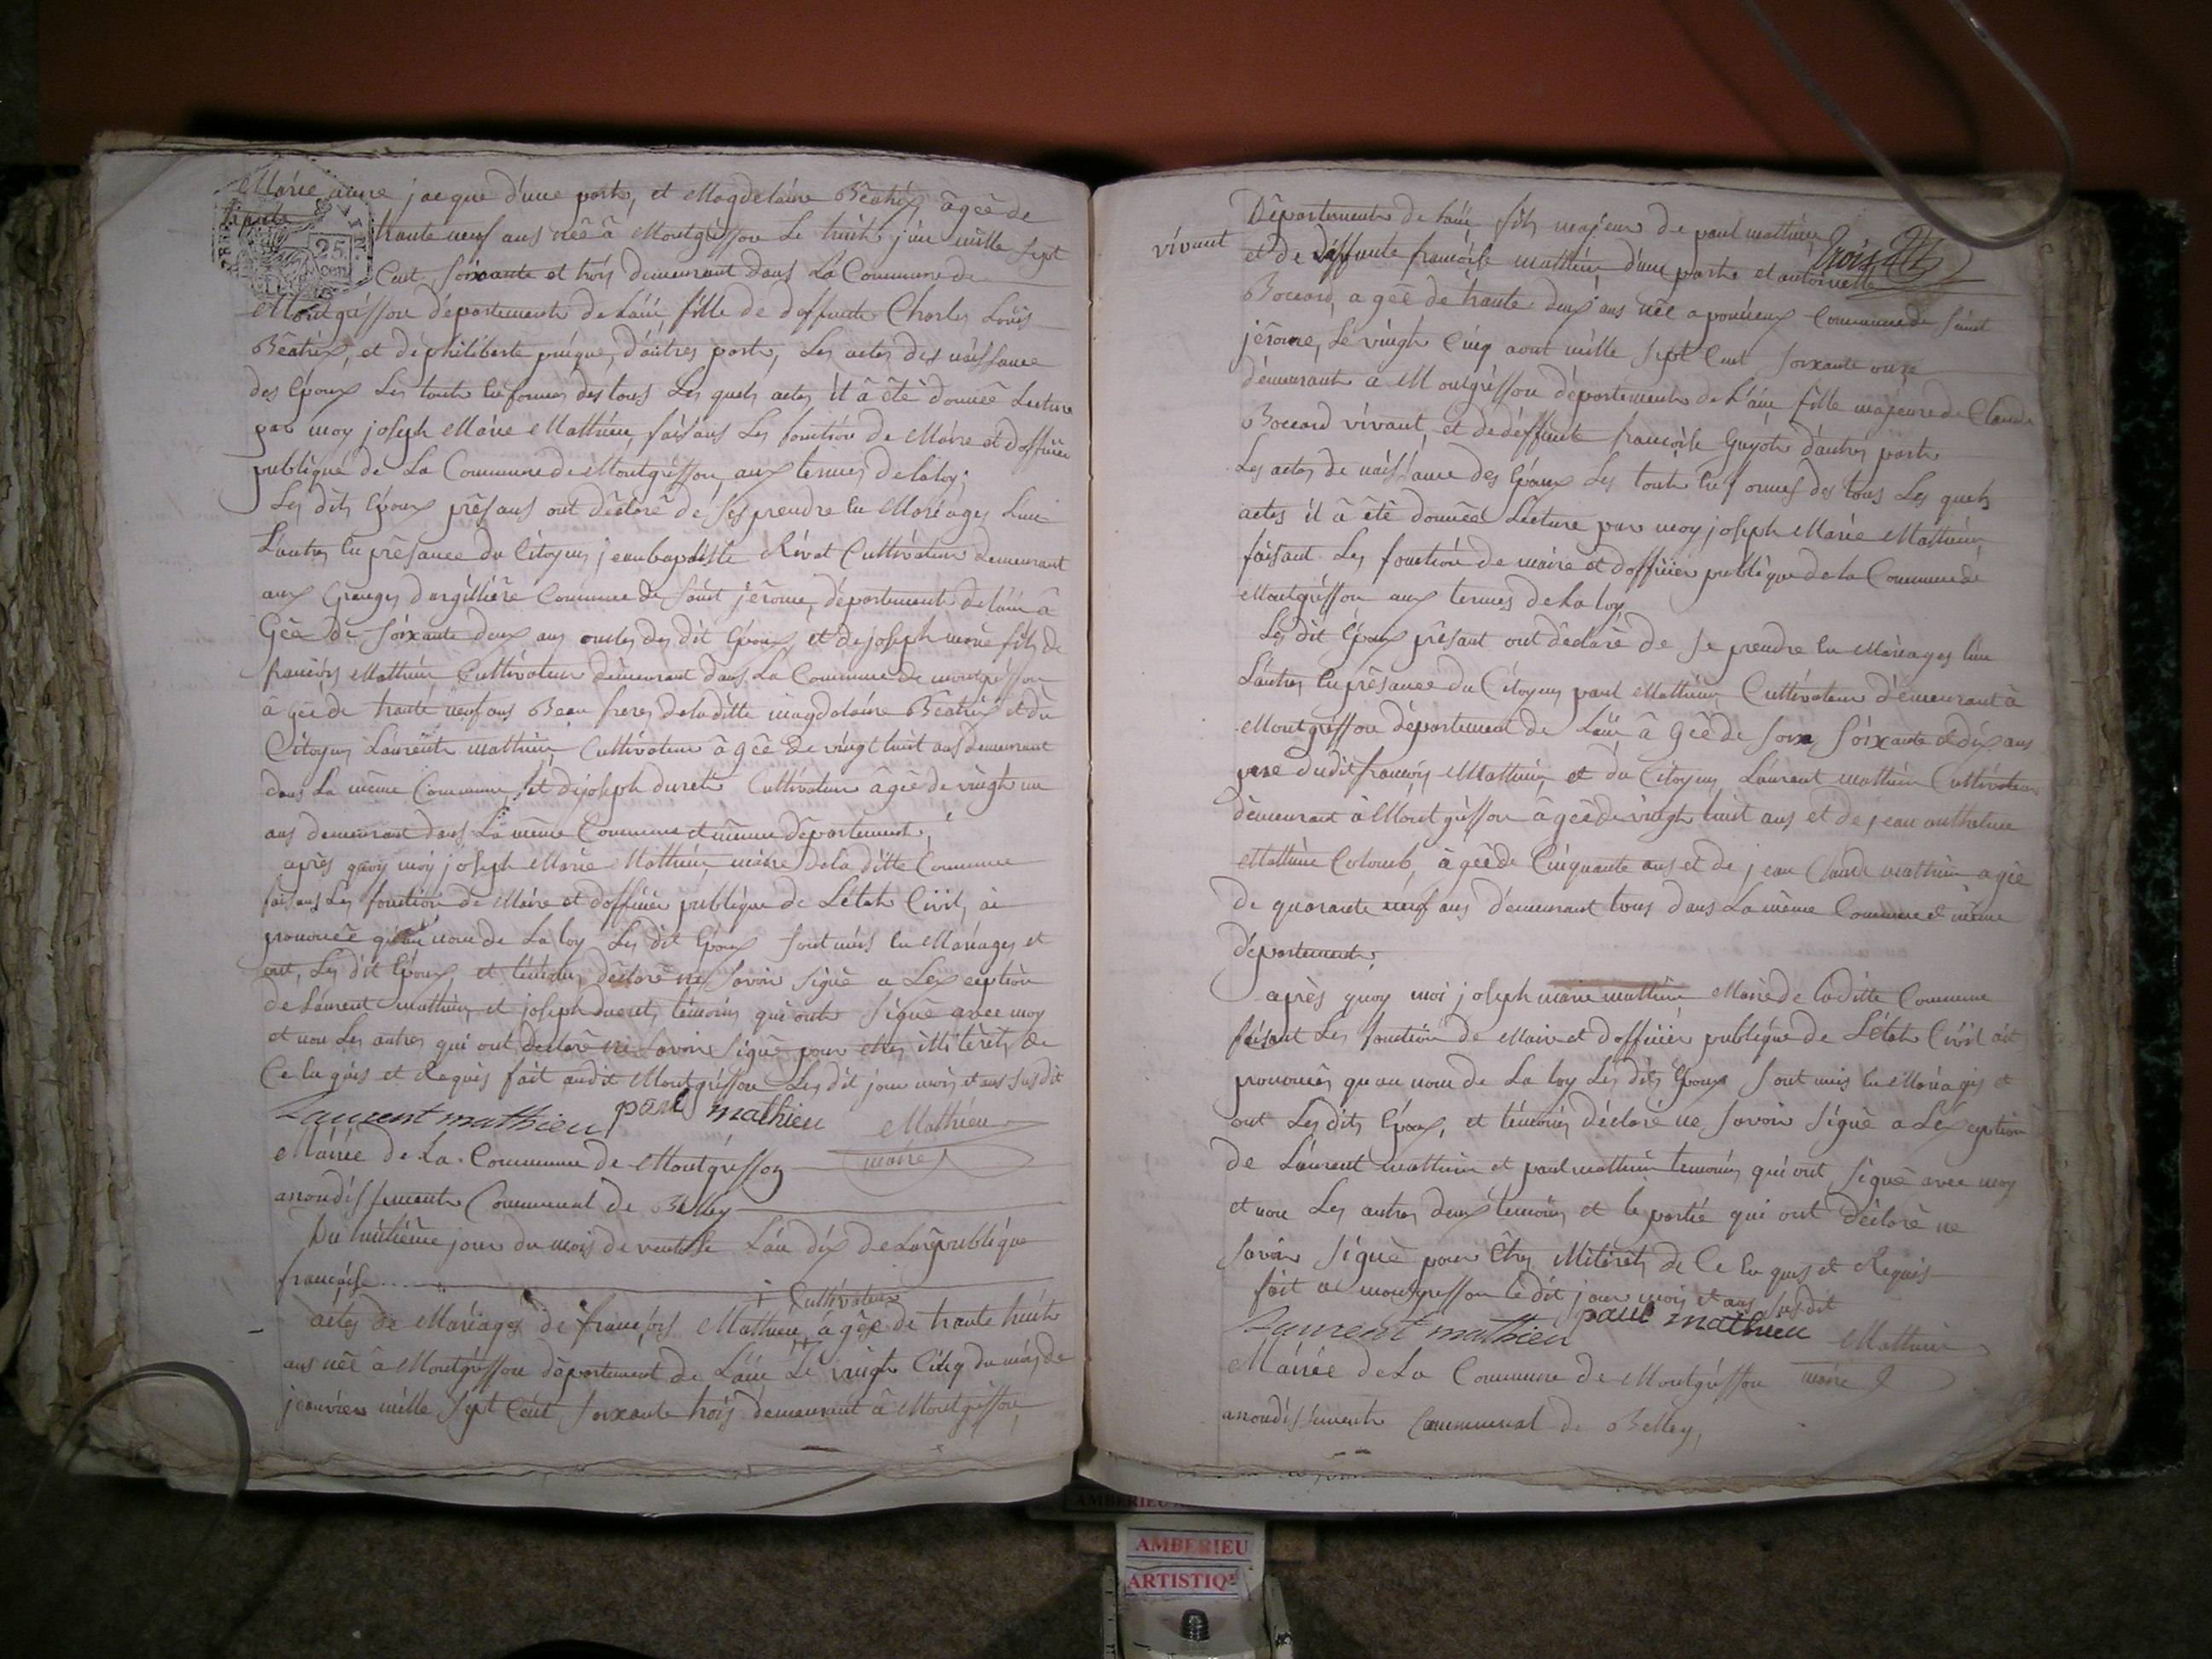 Marie anne jacque d'une part, et Magdelaine Béatrix âgée de
trante neuf ans née â Montgriffon Le huit juin mille sept
25
Cen.
Cent soixante et trois demeurant dans La Commune de
Montgriffon département de Lain fille de deffunte Charles Loüis
Béatrix, et de philiberte d'autres parts, Les actes des naissance
des Epoux Les toute en formes des tous Les quels actes il â été donneé Lecture
par moy joseph Marie Mathieu faisans Les fonction de Maire et dofficier
publique de La Commune de Montgriffon aux termes de la loy;
Les dits Epoux présans ont déclaré de ses prendre en Mariages Lun
L'autres en présance du Citoyens jean baptiste Rivat Cultivateur demeurant
aux Granges dargillière Commune de Saint jérome, département de lain â
Gée de soixante deux ans oncles des dit Epoux, et de joseph marie fils de
francois Mathieu Cultivateur demeurant dans La Commune de montgriffon
â gée de trante neuf ans Beau freres de la ditte magdelaine Béatrix et du
Citoyens Laurent mathieu Cultivateur â gée de vingt huit ans demeurant
dans La même Commune, et de joseph duret Cultivateur âgée de vingt un
ans demeurant dans La même Commune et même département,
après quoy moy joseph Marie Mathieu, maire de la ditte Commune
faisans Les fonction de Maire et dofficier publique de L'état Civil, ai
prononcé qu'au nom de La loy Les dit Epoux sont unis en Mariages et
ont, Les dit Epoux, et témoins, déclaré ne savoir signé a Lex ception
de Laurent mathieu et joseph duret, témoins qui ont signé avec moy
et non Les autres qui ont déclaré ne savoir signé pour êtres illitérét de
Ce en quis et Requis fait audit Montgriffon Les dit jour mois et ans susdit
Laurent mathieu paul mathieu Mathieu
Mairie de La Commune de Montgriffon maire
arrondissement Communal de Belley
Du huitième jour du mois de ventose L'an dix de La république
française
Cultivateur
actes de Mariages de françois Mathieu, âgée de trante huit
ans néé â Montgriffon département de Lain Le vingt Cinq du mois de
jeanvier mille sept Cent soixante trois demeurant â Montgriffon
Département de Lain fils majeur de paul mathieu
trois
vivant
et de deffunte françoise mathieu d'une parte et antoinette
Boccard, a gée de trante deux ans née a ponieux Commune de Saint
jérome, Le vingt Cinq aout mille sept Cent soixante onze
demeurant a Montgriffon département de L'ain fille majeure de Claude
Boccard vivant, et de deffunte françoise Guyot d'autres parts
Les actes de naissance des Epoux Les toute en formes des tous Les quels
actes il â été donnée Lecture par moy joseph Marie Mathieu
faisant Les fonction de maire et dofficier publique de la Commune de
Montgriffon aux termes de La loy
Les dit Epoux présant ont déclaré de se prendre en Mariages lun
L'autres en présance du Citoyens paul Mathieu Cultivateur demeurant â
Montgriffon département de Lain â Gée de soixa soixante et dix ans
pere dudit françois Mathieu, et du Citoyens Laurent mathieu Cultivateur
demeurant â Montgriffon âgée de vingt huit ans et de jean anthelme
Mathieu Colomb, âgée de Cinquante ans et de jean Claude mathieu agée
de quarante neuf ans demeurant tous dans La même Commune et même
département;
après quoy moi joseph marie mathieu Maire de La ditte Commune
faisant Les fonction de Maire et dofficier publique de L'état Civil ait
prononcés qu'au nom de La loy Les dits Epoux sont unis en Mariages et
ont Les dits Epoux, et témoins déclaré ne savoir signé a Lexception
de Laurent mathieu et paul mathieu temoins qui ont signé avec moy
et non Les autres deux temoins et la partie qui ont déclaré ne
savoir signé pour êtres illitérét de Ce en quis et Requis
fait a montgriffon le dit jour mois et ans susdit
Laurent mathieu paul mathieu Mathieu
Mairie de La Commune de Montgriffon maire
arrondissement Communal de Belley,
AMBERIEU
AMBERIEU
ARTISTIQ